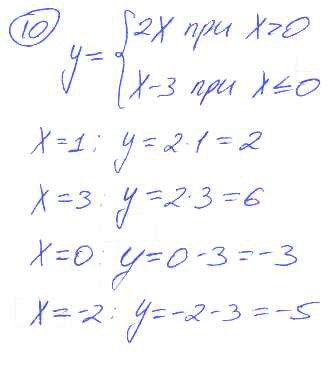 10
y = { 2x при x>0
x-3 при x≤0
x=1: y=2·1=2
x=3: y=2·3=6
x=0: y=0-3=-3
x=-2: y=-2-3=-5